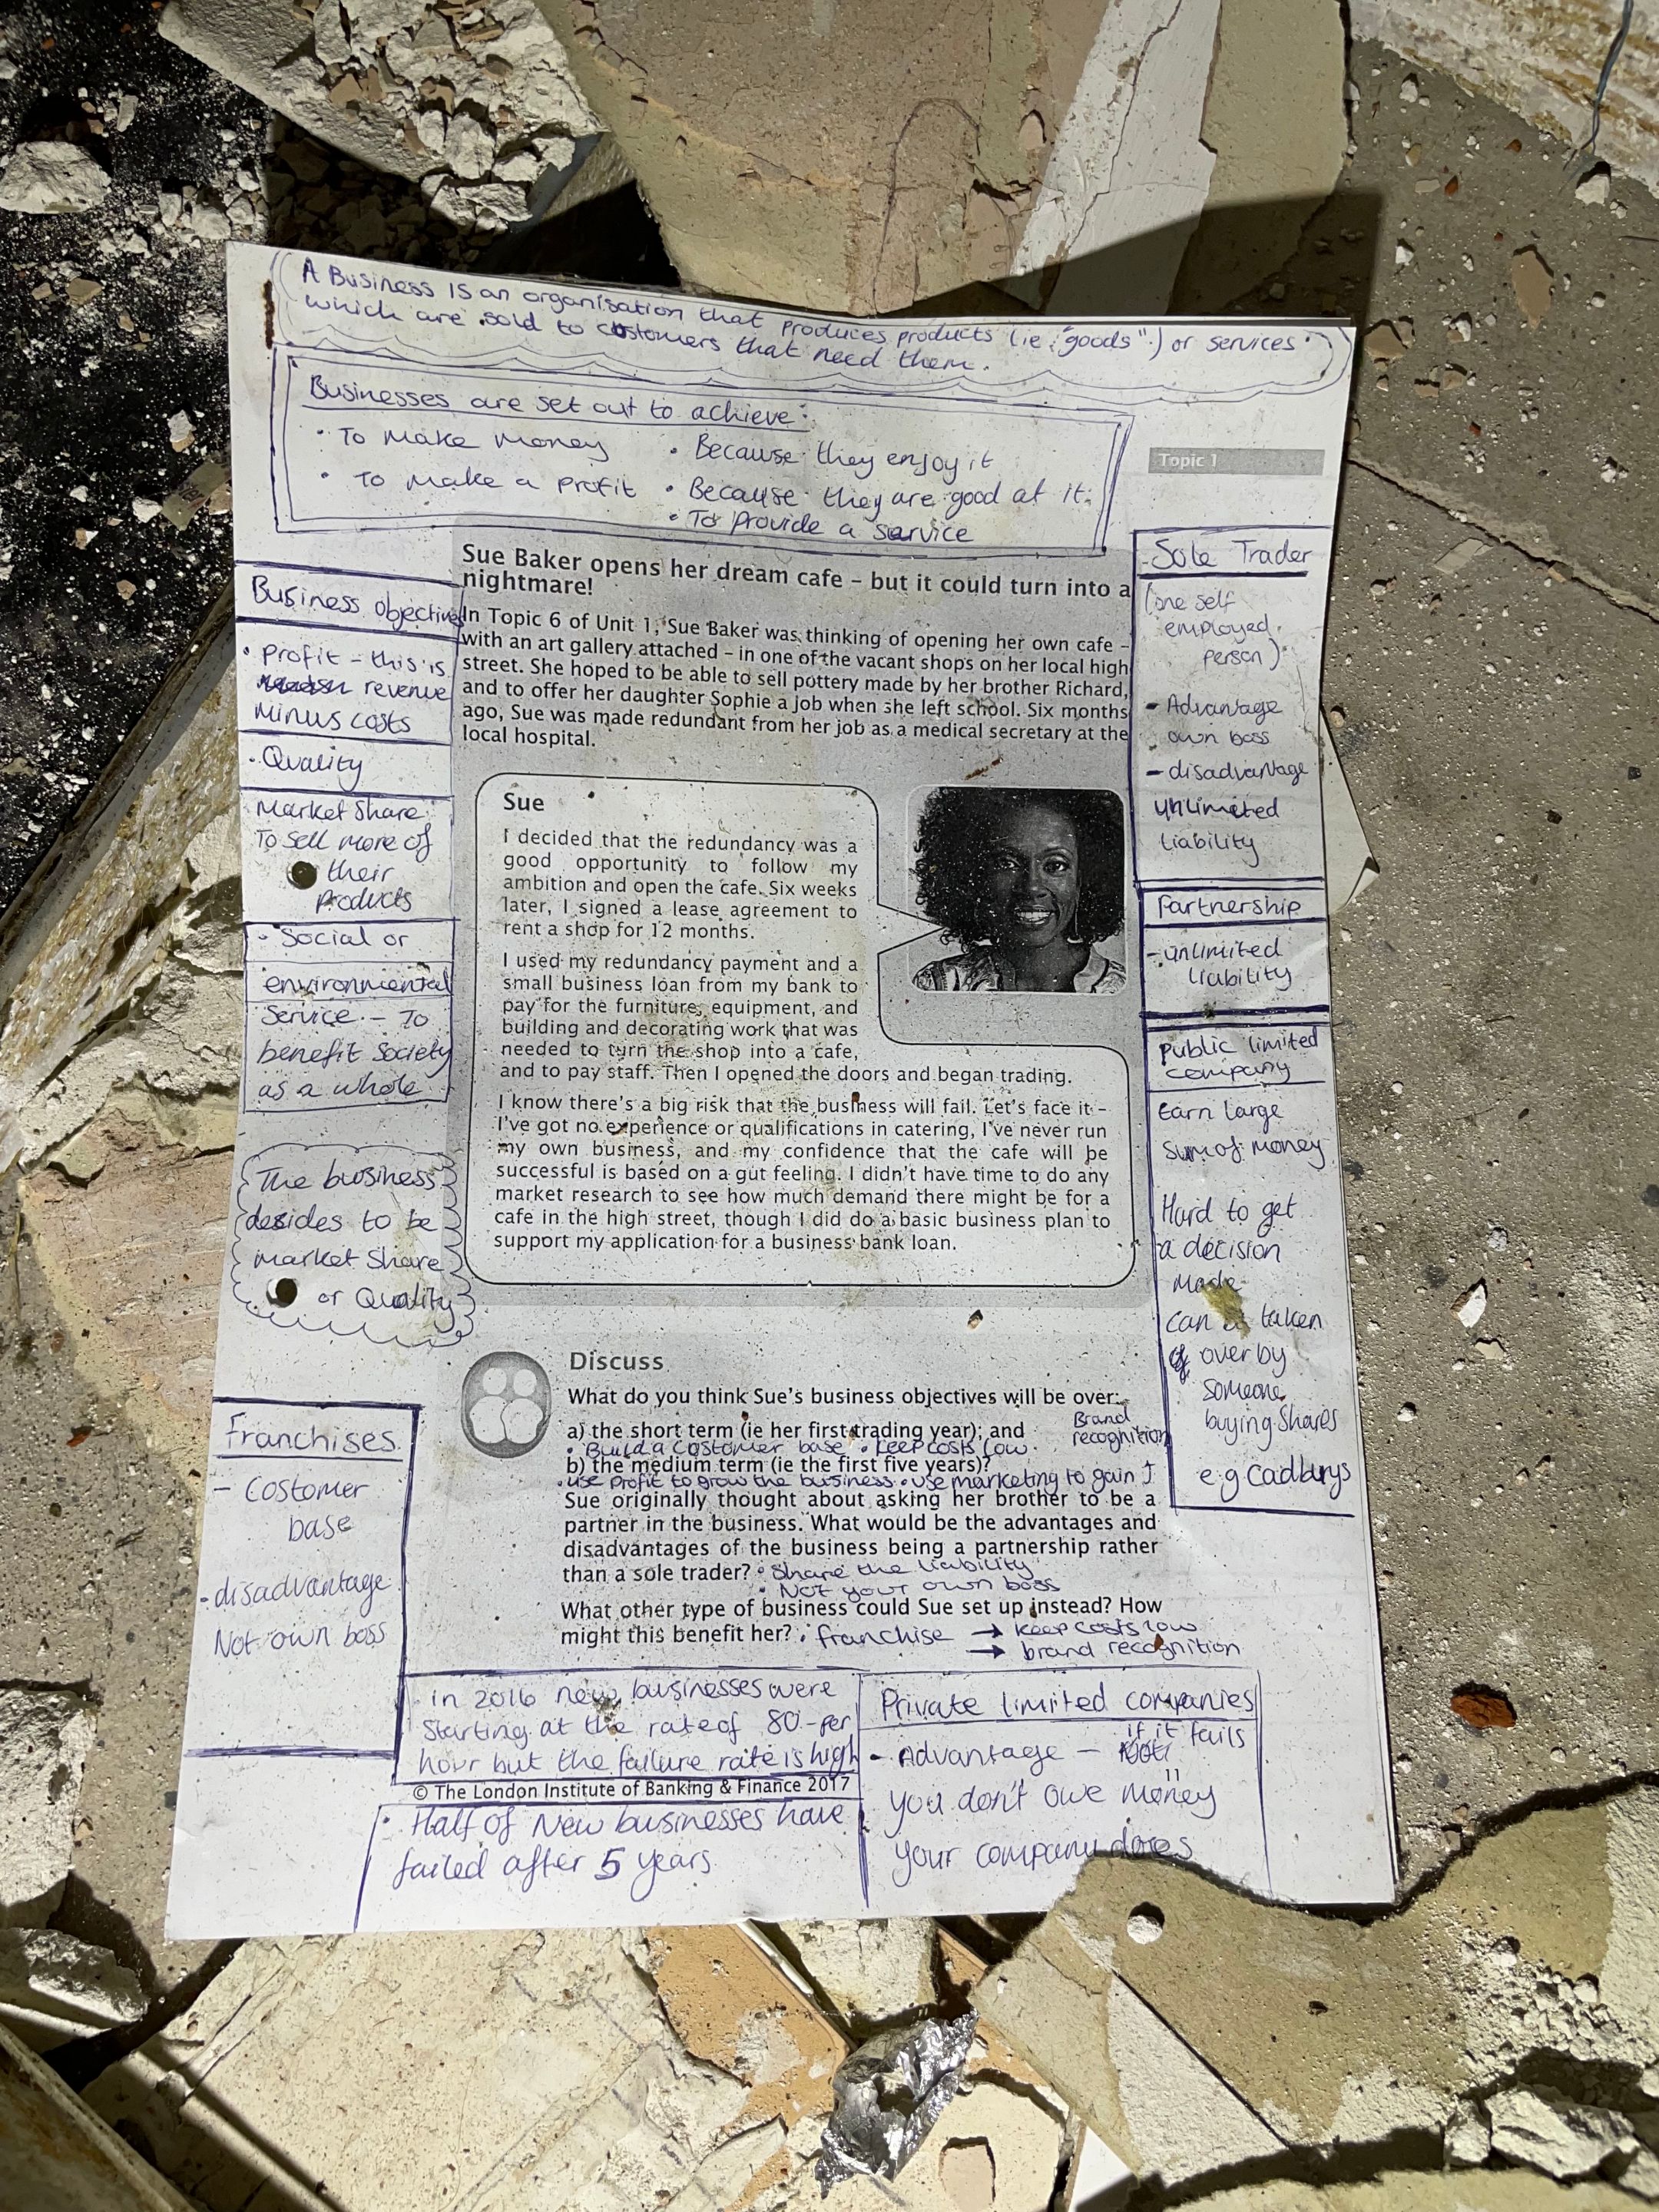 A Business is an organisation that produces products (ie "goods") or services
which are sold to customers that need them.
Businesses are set out to achieve:
• To make money
• To make a profit
• Because they enjoy it
• Because they are good at it.
• To provide a service
Topic 1
Sue Baker opens her dream cafe – but it could turn into a
nightmare!
In Topic 6 of Unit 1, Sue Baker was thinking of opening her own cafe –
with an art gallery attached – in one of the vacant shops on her local high
street. She hoped to be able to sell pottery made by her brother Richard,
and to offer her daughter Sophie a job when she left school. Six months
ago, Sue was made redundant from her job as a medical secretary at the
local hospital.
Business objectives
• Profit – this is
revenue
minus costs
• Quality
Market Share
To sell more of
their
products
• Social or
environmental
service – To
benefit society
as a whole
The business
desides to be
market share
or Quality
Sue
I decided that the redundancy was a
good opportunity to follow my
ambition and open the cafe. Six weeks
later, I signed a lease agreement to
rent a shop for 12 months.
I used my redundancy payment and a
small business loan from my bank to
pay for the furniture, equipment, and
building and decorating work that was
needed to turn the shop into a cafe,
and to pay staff. Then I opened the doors and began trading.
I know there's a big risk that the business will fail. Let's face it –
I've got no experience or qualifications in catering, I've never run
my own business, and my confidence that the cafe will be
successful is based on a gut feeling. I didn't have time to do any
market research to see how much demand there might be for a
cafe in the high street, though I did do a basic business plan to
support my application for a business bank loan.
- Sole Trader
(one self
employed
person)
- Advantage
own boss
- disadvantage
unlimited
liability
Partnership
- unlimited
liability
Public limited
company
Earn large
sum of money
Hard to get
a decision
made
can taken
over by
someone
buying shares
e.g Cadburys
Discuss
What do you think Sue's business objectives will be over:
a) the short term (ie her first trading year); and
• Build a costomer base • keep costs low
b) the medium term (ie the first five years)?
• use profit to grow the business • use marketing to gain ↑
Brand
recognition
Sue originally thought about asking her brother to be a
partner in the business. What would be the advantages and
disadvantages of the business being a partnership rather
than a sole trader? • Share the liability
• Not your own boss
What other type of business could Sue set up instead? How
might this benefit her? • franchise → keep costs low
→ brand recognition
Franchises
- Costomer
base
• disadvantage
Not own boss
• in 2016 new businesses were
starting at the rate of 80 per
hour but the failure rate is high
© The London Institute of Banking & Finance 2017
11
• Half of new businesses have
failed after 5 years
Private limited companies
• Advantage – if it fails
you don't owe money
your company does